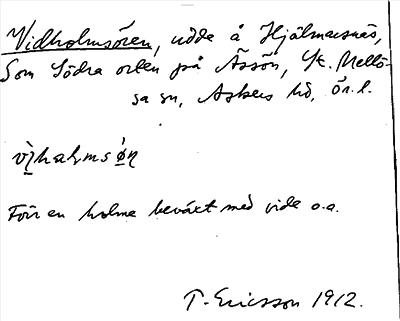 Vidholmsören, udde å Hjälmarsnäs,
Som Södra orten på Åsön, St. Mellö-
sa sn, Askers hd, Ör. l.
vi̖halmsø̀ṇ
Förr en holme beväxt med vide o.a.
T. Ericsson 1912.